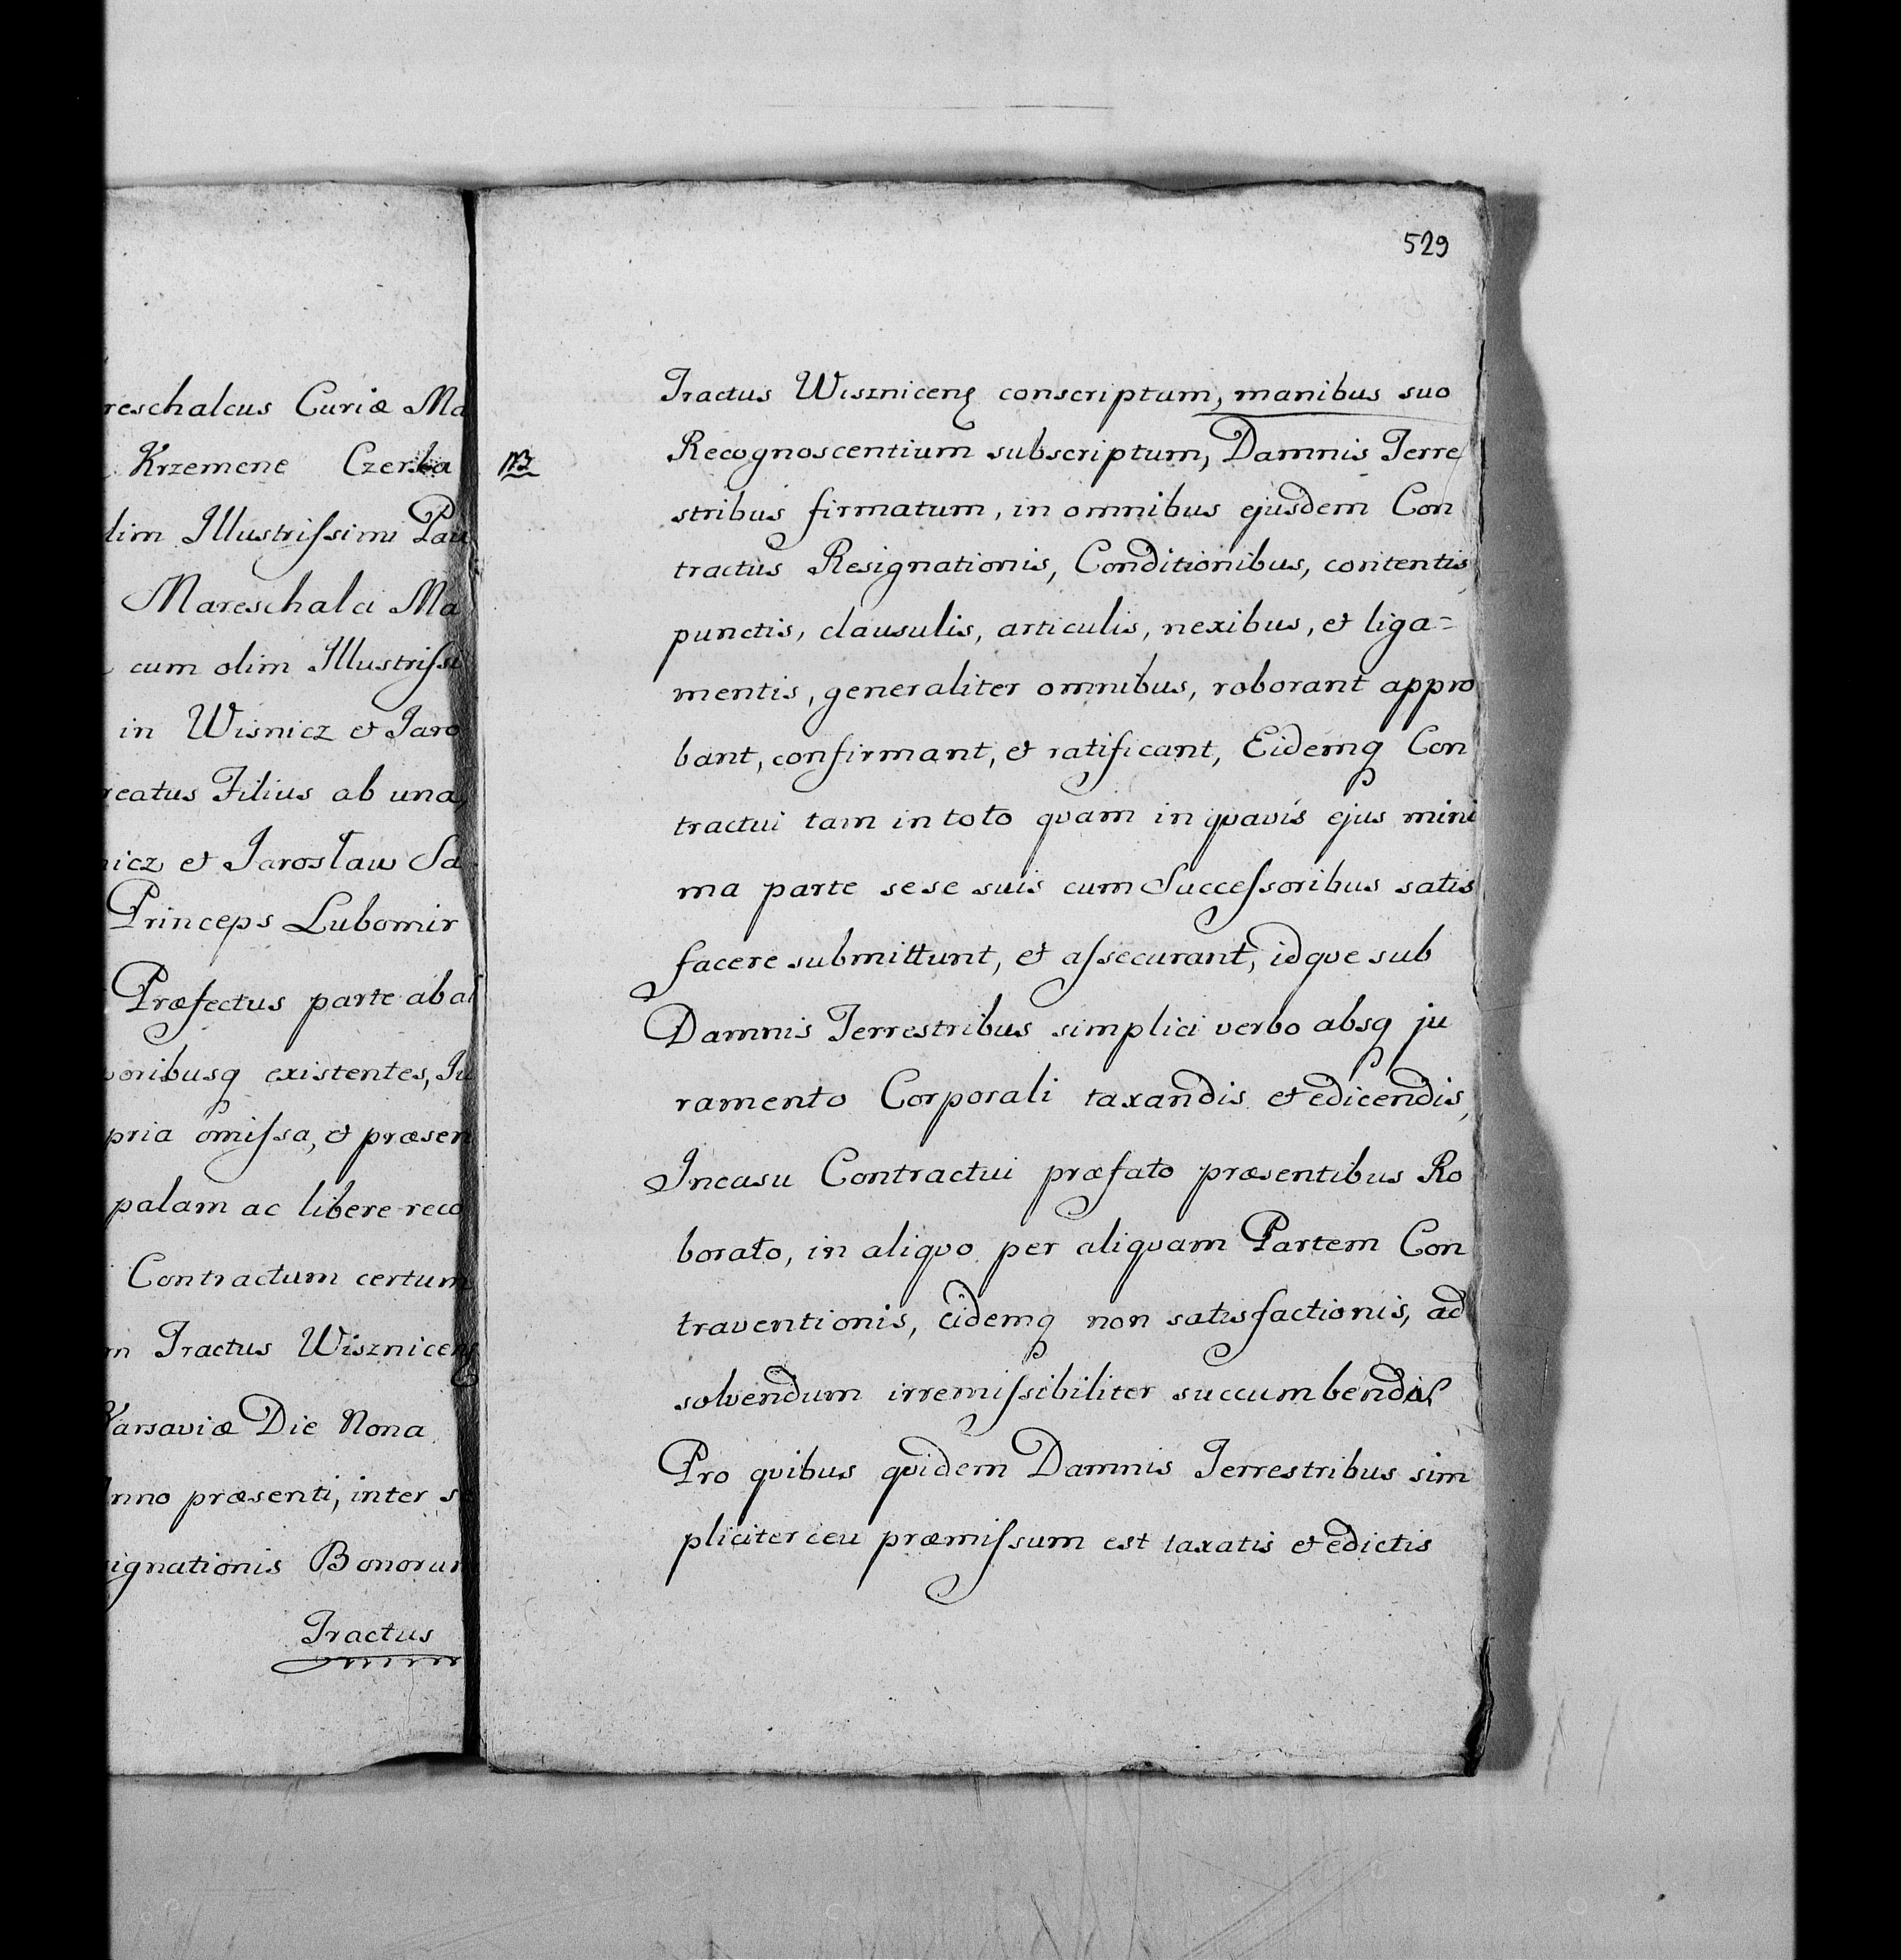 reschalcus Curiæ Ma
Krzemene Czerka
dim Illustrissimi Pau
Mareschalci Ma
cum olim Illustrissi
in Wisnicz et Jaro
reatus Filius ab una,
nicz et Jarosław Sa
Princeps Lubomir
Præfectus parte ab al
oribusq existentes, Ju
pria omissa, et præsen
palam ac libere reco
Contractum certum
m Tractus Wisznicenſ
Varsaviæ Die Nona
Anno præsenti, inter se
signationis Bonorum
Tractus
529
Tractus Wisznicenſ conscriptum, manibus suo
NB
Recognoscentium subscriptum, Damnis Terre
stribus firmatum, in omnibus ejusdem Con
tractus Resignationis, Conditionibus, contentis
punctis, clausulis, articulis, nexibus, et liga=
mentis, generaliter omnibus, roborant appro
bant, confirmant, et ratificant, Eidemq Con
tractui tam in toto qvam in qvavis ejus mini
ma parte sese suis cum Successoribus satis
facere submittunt, et assecurant, idqve sub
Damnis Terrestribus simplici verbo absq ju
ramento Corporali taxandis et edicendis,
In casu Contractui præfato præsentibus Ro
borato, in aliqvo per aliqvam Partem Con
traventionis, eidemq non satisfactionis, ad
solvendum irremissibiliter succumbendis
Pro qvibus qvidem Damnis Terrestribus sim
pliciter ceu præmissum est taxatis et edictis